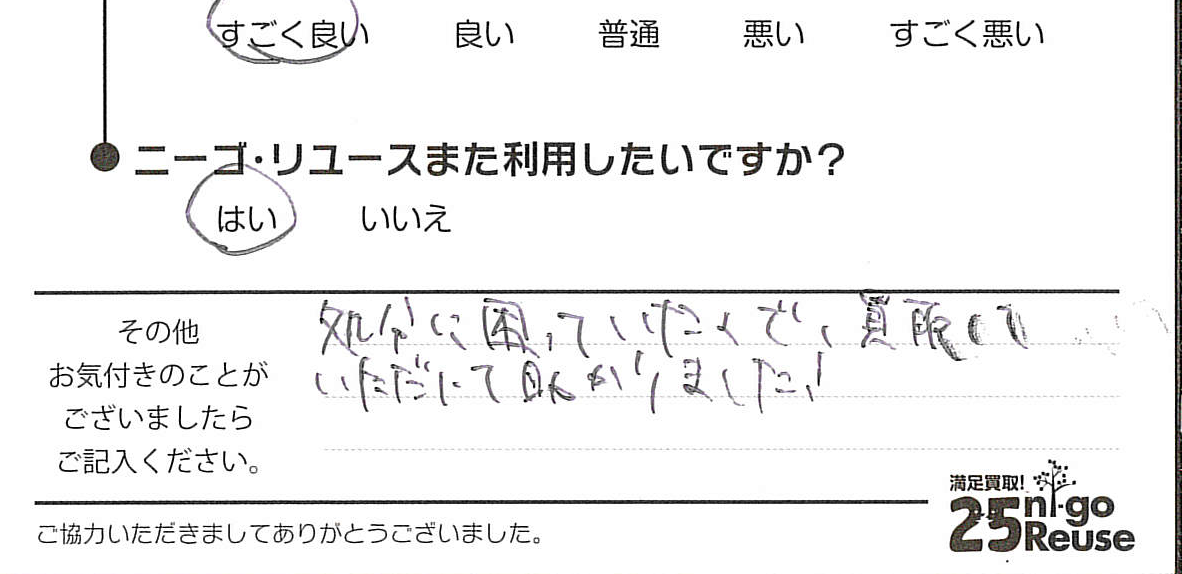 すごく良い 良い 普通 悪い すごく悪い
ニーゴ・リユースまた利用したいですか？
はい いいえ
その他
お気付きのことが
ございましたら
ご記入ください。
処分に困っていたくで、買取して
いただいて助かりました!
ご協力いただきましてありがとうございました。
満足買取!
25 ni-go
Reuse